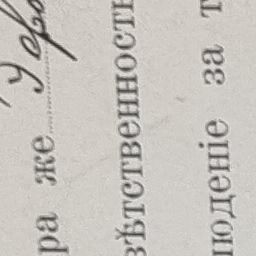 ра же
вѣтственность
юденіе за т